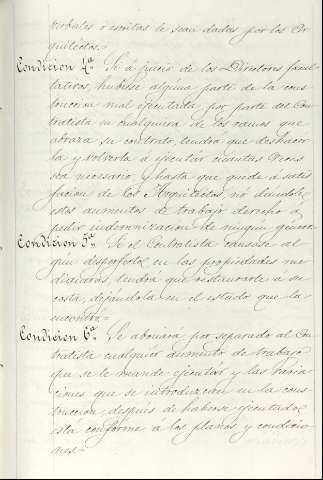 verbales ó escritas le sean dadas por los Ar-
quitectos.-
Condicion 4ª Si á juicio de los Directores facul-
tativos, hubiese alguna parte de la cons-
truccion mal ejecutada, por parte del Con-
tratista en cualquiera de los ramos que
abraza su contrato, tendrá que deshacer-
la y volverla á ejecutar cuantas veces
sea necesario y hasta que quede á satis-
faccion de los Arquitectos, no dándole
estos aumentos de trabajo derecho á
pedir indemnizacion de ningun género
Condicion 5ª Si el Contratista causase al-
gun desperfecto en las propiedades me-
dianeras, tendrá que restaurarlo á su
costa, dejándola en el estado que la
encontró.-
Condicion 6ª Se abonará por separado al Con-
tratista cualquier aumento de trabajo
que se le mande ejecutar y las varia-
ciones que se introduzcan en la cons-
truccion, despues de haberse ejecutado
esta conforme á los planos y condicio-
nes.-